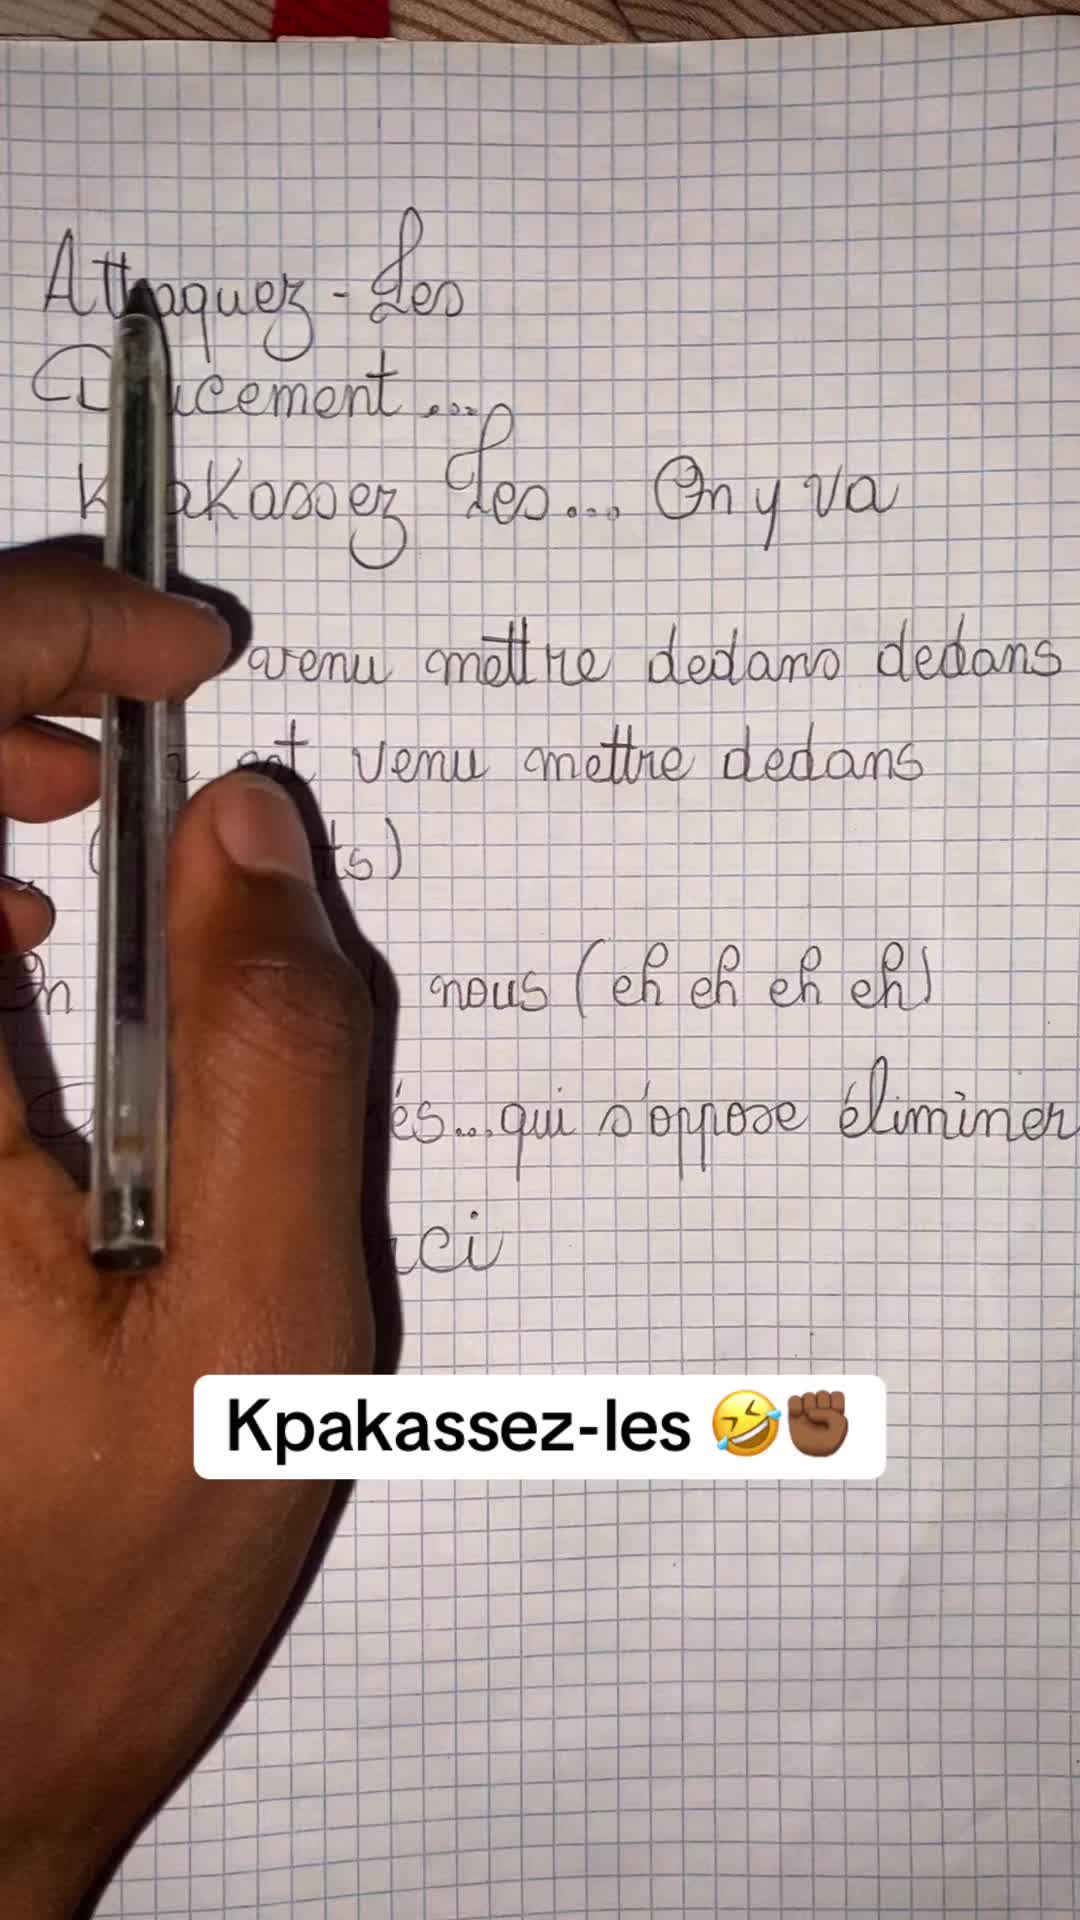 Attaquez-Les
Doucement...
Kpakassez Les... On y va
venu mettre dedans dedans
est venu mettre dedans
On nous (eh eh eh eh)
qui s'oppose éliminer
Kpakassez-les 🤣✊🏾